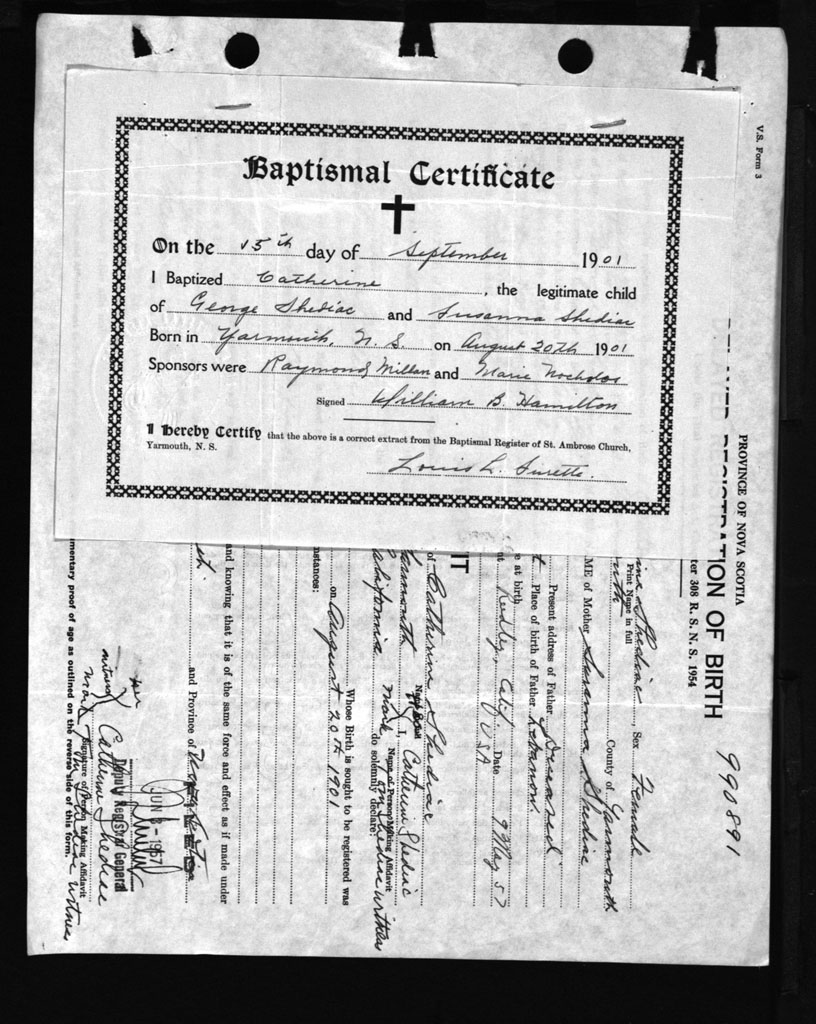 V.S. Form 3
Baptismal Certificate
On the 15th day of September 1901
I Baptized Catherine, the legitimate child
of George Shediac and Susanna Shediac
Born in Yarmouth, N. S. on August 20th 1901
Sponsors were Raymond Millan and Marie
Signed William B. Hamilton
I hereby Certify that the above is a correct extract from the Baptismal Register of St. Ambrose Church,
Yarmouth, N. S.
Louis L. Surette.
PROVINCE OF NOVA SCOTIA
REGISTRATION OF BIRTH
308 R. S. N. S. 1954
990891
Shediac, Sex Female
Print Name in full
County of Yarmouth
of Mother Susanna Shediac
Present address of Father Deceased
Place of birth of Father Lebanon
at birth
Reedley, Calif, USA Date 9 May 57
of Catherine Shediac
I, Catherine Shediac
Name of Person Making Affidavit
California mark
do solemnly declare:
Whose Birth is sought to be registered was
on August 20th 1901
and knowing that it is of the same force and effect as if made under
and Province of
JUN 3 - 1957
Deputy Registrar General
her
mark
Catherine Shediac
Signature of Person Making Affidavit
proof of age as outlined on the reverse side of this form.